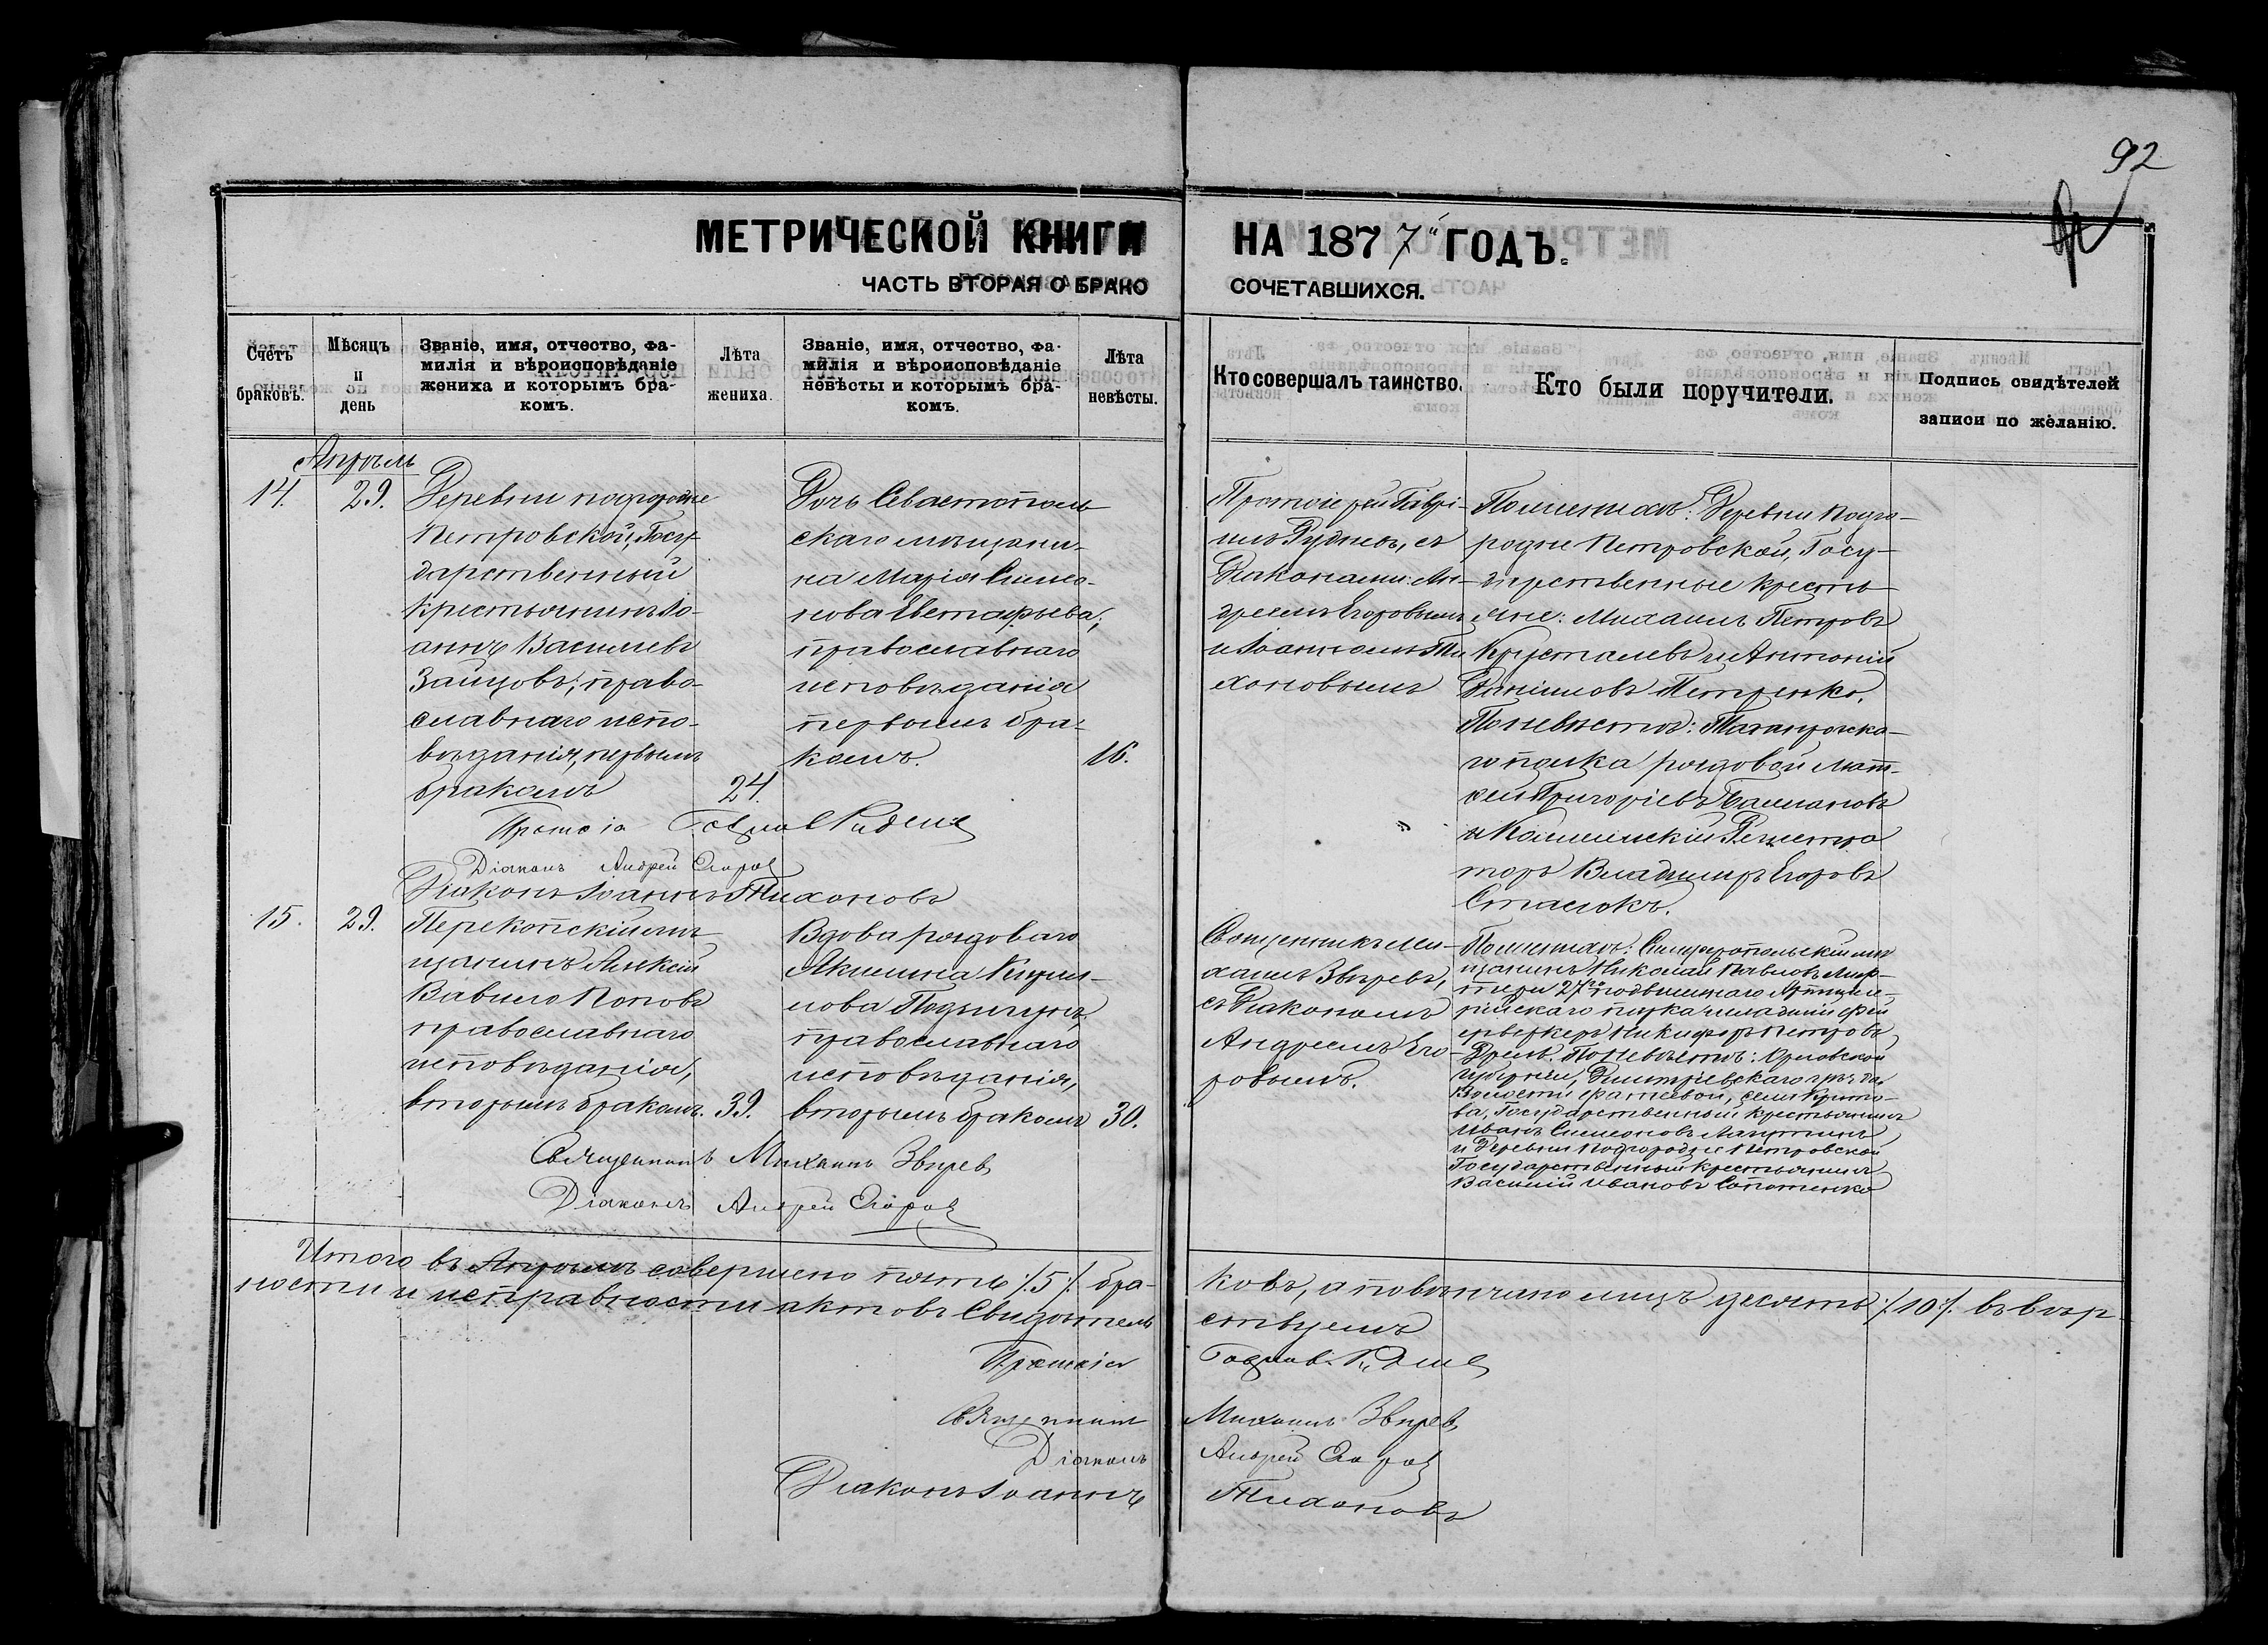 92
МЕТРИЧЕСКОЙ КНИГИ НА 1877 ГОДЪ.
ЧАСТЬ ВТОРАЯ О БРАКО СОЧЕТАВШИХСЯ.
Счетъ браковъ.
Мѣсяцъ и день
Званіе, имя, отчество, фа-
милія и вѣроисповѣданіе
жениха и которымъ бра-
комъ.
Лѣта жениха.
Званіе, имя, отчество, фа-
милія и вѣроисповѣданіе
невѣсты и которымъ бра-
комъ.
Лѣта невѣсты.
Кто совершалъ таинство.
Кто были поручители.
Подпись свидѣтелей
записи по желанію.
Апрѣль
14.
29.
Деревни подгородне
Петровской, Госу-
дарственный
крестьянинъ Іо-
аннъ Васильевъ
Зайцовъ, право-
славнаго испо-
вѣданія, первымъ
бракомъ
24.
Дочь Севастополь
скаго мѣщани-
на Марія Симео-
нова Евстафьева,
православнаго
исповѣданія
первымъ бра-
комъ.
16.
Протоіерей Гаврі-
илъ Рудневъ, съ
Діаконами: Ан-
дреемъ Егоровымъ
и Іоанномъ Ти
хоновымъ
По женихѣ: Деревни Подго-
родне Петровской, Госу-
дарственные кресть
яне: Михаилъ Петровъ
Крусталевъ и Антоній
Даніиловъ Петренко.
По невѣстѣ: Таганрогска-
го полка рядовой Мат-
фей Григоріевъ
и Коллежскій Регистра
торъ Владиміръ Егоровъ
Протоіе Гавріил Руднев
Діаконъ Андрей Егоров
Діаконъ Іоаннъ Тихоновъ
15.
29.
Перекопскій мѣ
щанинъ Алексій
Вавило Поповъ
православнаго
исповѣданія,
вторымъ бракомъ.
39.
Вдова рядоваго
Акилина Кирил-
лова
православнаго
исповѣданія,
вторымъ бракомъ
30.
Священникъ Ми-
хаилъ Звѣревъ,
съ Діакономъ
Андреемъ Его-
ровымъ.
По женихѣ: Симферопольскій мѣ
щанинъ Николай Павловъ
27го подвижнаго Артилле-
рійскаго парка младшій фей
ерверкеръ Никифоръ Петровъ
По невѣстѣ: Орловской
губерніи, Дмитріевскаго уѣзда
Волости
Государственный крестьянинъ
Иванъ Симеоновъ
и Деревни Подгородне Петровской
Государственный крестьянинъ
Василій Ивановъ
Священникъ Михаилъ Звѣрев
Діаконъ Андрей Егоров
Итого въ Апрѣлѣ совершено пять /5/. бра- ковъ, а повѣнчано лицъ десять /10/. въ вѣр-
ности и исправности актовъ Свидѣтель ствуемъ
Протоіер Гавріил Руднев
Священник Михаилъ Звѣрев
Діаконъ Андрей Егоров
Діаконъ Іоаннъ Тихоновъ